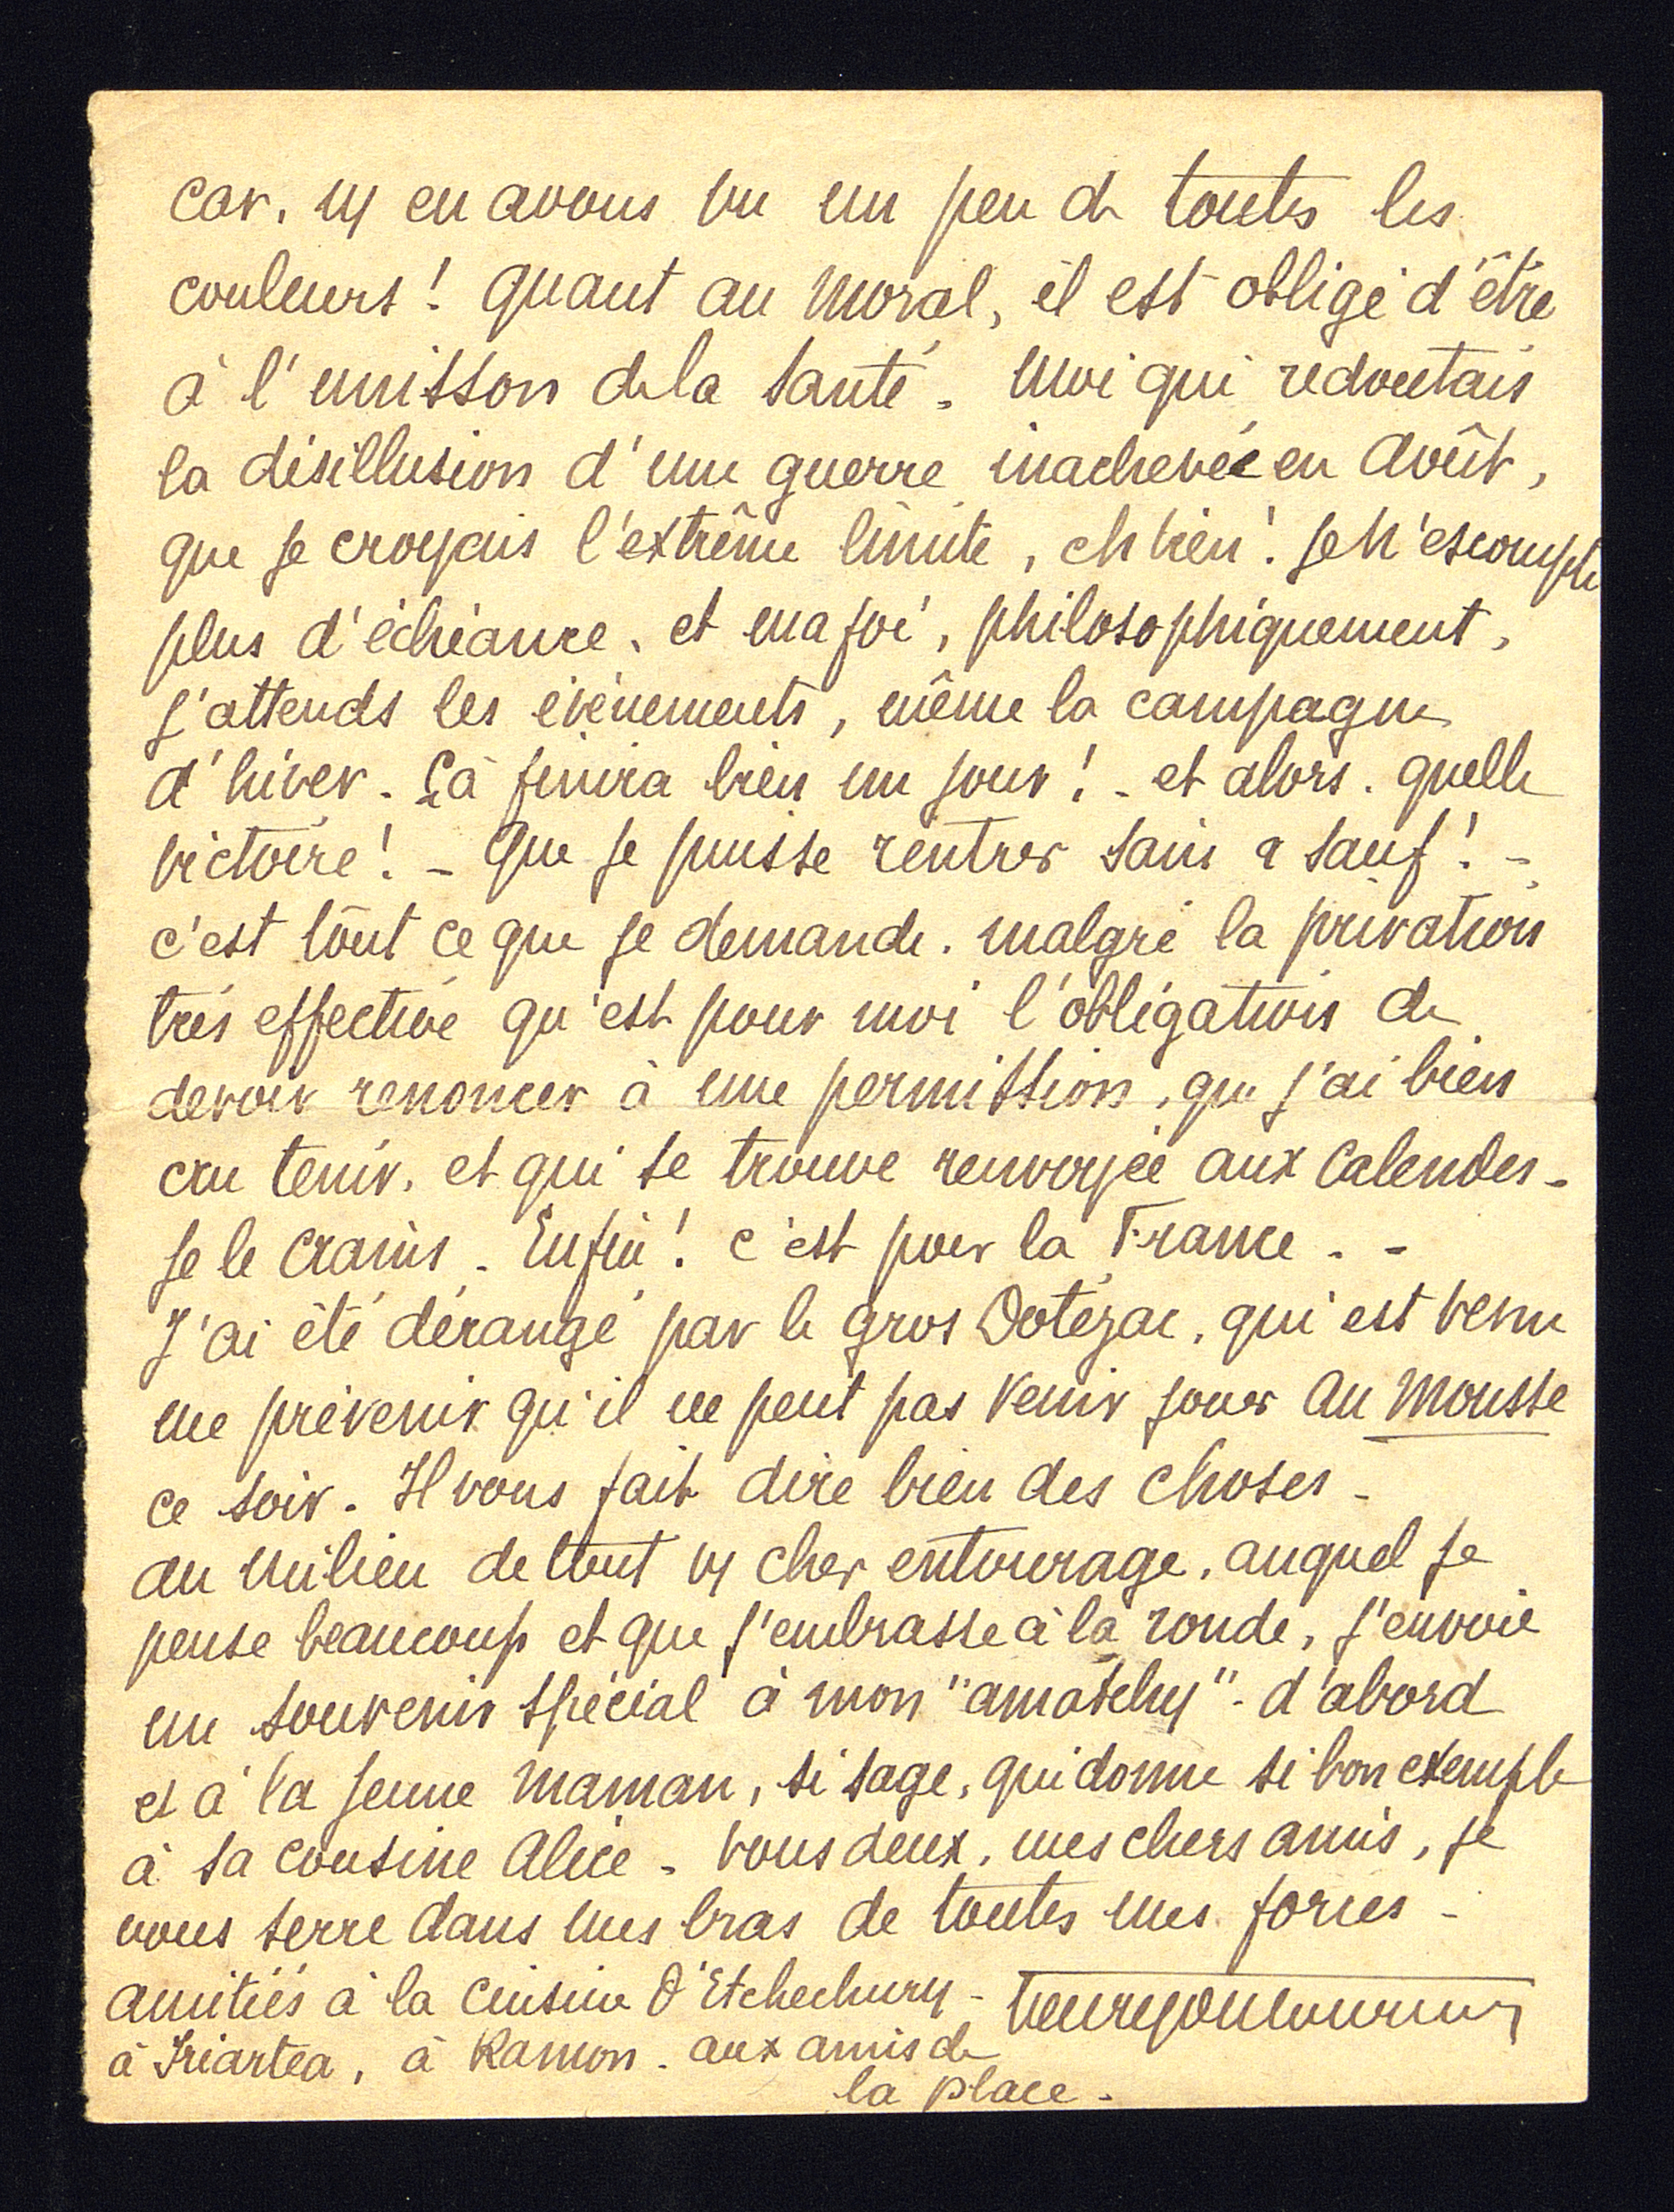 car, ns en avons vu un peu de toutes les
couleurs ! quant au moral, il est obligé d'être
à l'unisson de la santé. moi qui redoutais
la désillusion d'une guerre inachevée en Août,
que je croyais l'extrême limite, eh bien ! je n'escompte
plus d'échéance, et ma foi, philosophiquement,
j'attends les évènements, même la campagne
d'hiver - Çà finira bien un jour ! - et alors. quelle
victoire ! - que je puisse rentrer sain & sauf ! -
c'est tout ce que je demande. malgré la privation
très effective qu'est pour moi l'obligation de
devoir renoncer à une permission, que j'ai bien
cru tenir, et qui se trouve renvoyée aux Calendes -
je le crains - Enfin ! c'est pour la France - -
J'ai été dérangé par le gros Dotézac, qui est venu
me prévenir qu'il ne peut pas venir jouer au Mousse
ce soir. Il vous fait dire bien des choses -
au milieu de tout vs cher entourage, auquel je
pense beaucoup et que j'embrasse à la ronde, j'envoie
un souvenir spécial à mon "amatchy" - d'abord
et à la jeune maman, si sage, qui donne si bon exemple
à sa cousine Alice - vous deux, mes chers amis, je
vous serre dans mes bras de toutes mes forces -
amitiés à la cuisine d'Etchechury -
à Iriartea, à Ramon - aux amis de
la place -